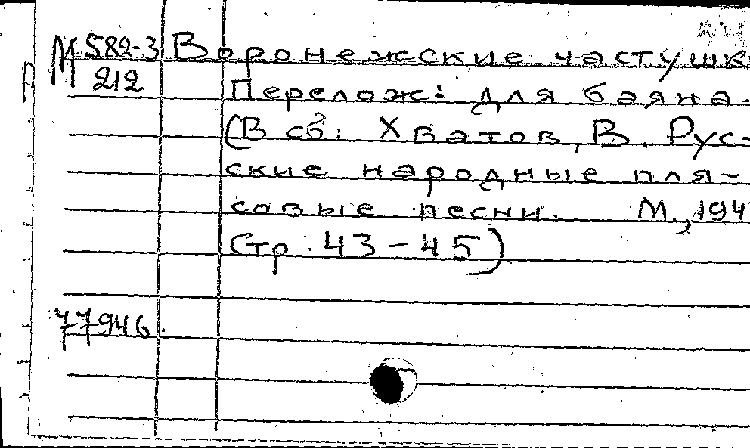 М 582-3 Воронежские частушк
212 Перелож: для баяна.
(В сб: Хватов, В. Рус-
ские народные пля-
совые песни. М., 194
Стр. 43-45)
77946